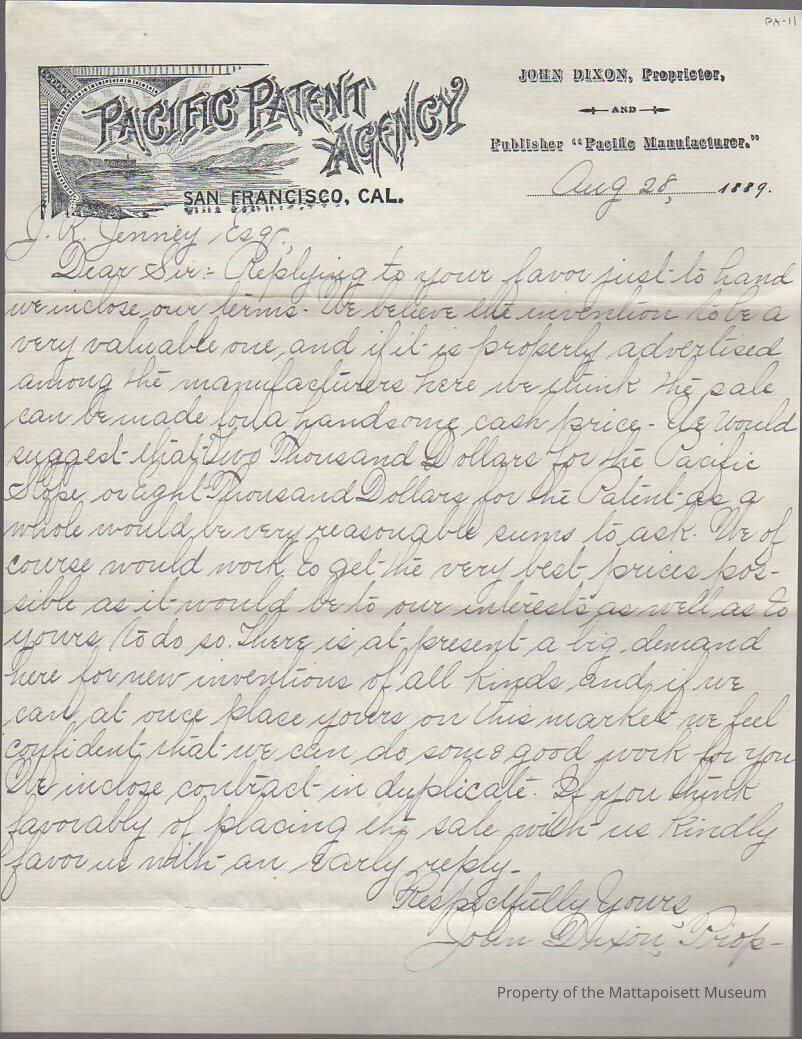 PA-11
PACIFIC PATENT AGENCY
SAN FRANCISCO, CAL.
JOHN DIXON, Proprietor,
AND
Publisher "Pacific Manufacturer."
Aug 28, 1889.
J. R. Jenney Esq.,
Dear Sir:- Replying to your favor just to hand
we inclose our terms. We believe the invention to be a
very valuable one, and if it is properly advertised
among the manufacturers here we think the sale
can be made for a handsome cash price. We would
suggest that Two Thousand Dollars for the Pacific
Slope, or Eight Thousand Dollars for the Patent as a
whole would be very reasonable sums to ask. We of
course would work to get the very best prices pos-
sible as it would be to our interests as well as to
yours to do so. There is at present a big demand
here for new inventions of all kinds and if we
can at once place yours on this market we feel
confident that we can do some good work for you
We inclose contract in duplicate. If you think
favorably of placing the sale with us kindly
favor us with an early reply.
Respectfully Yours,
John Dixon, Prop-
Property of the Mattapoisett Museum